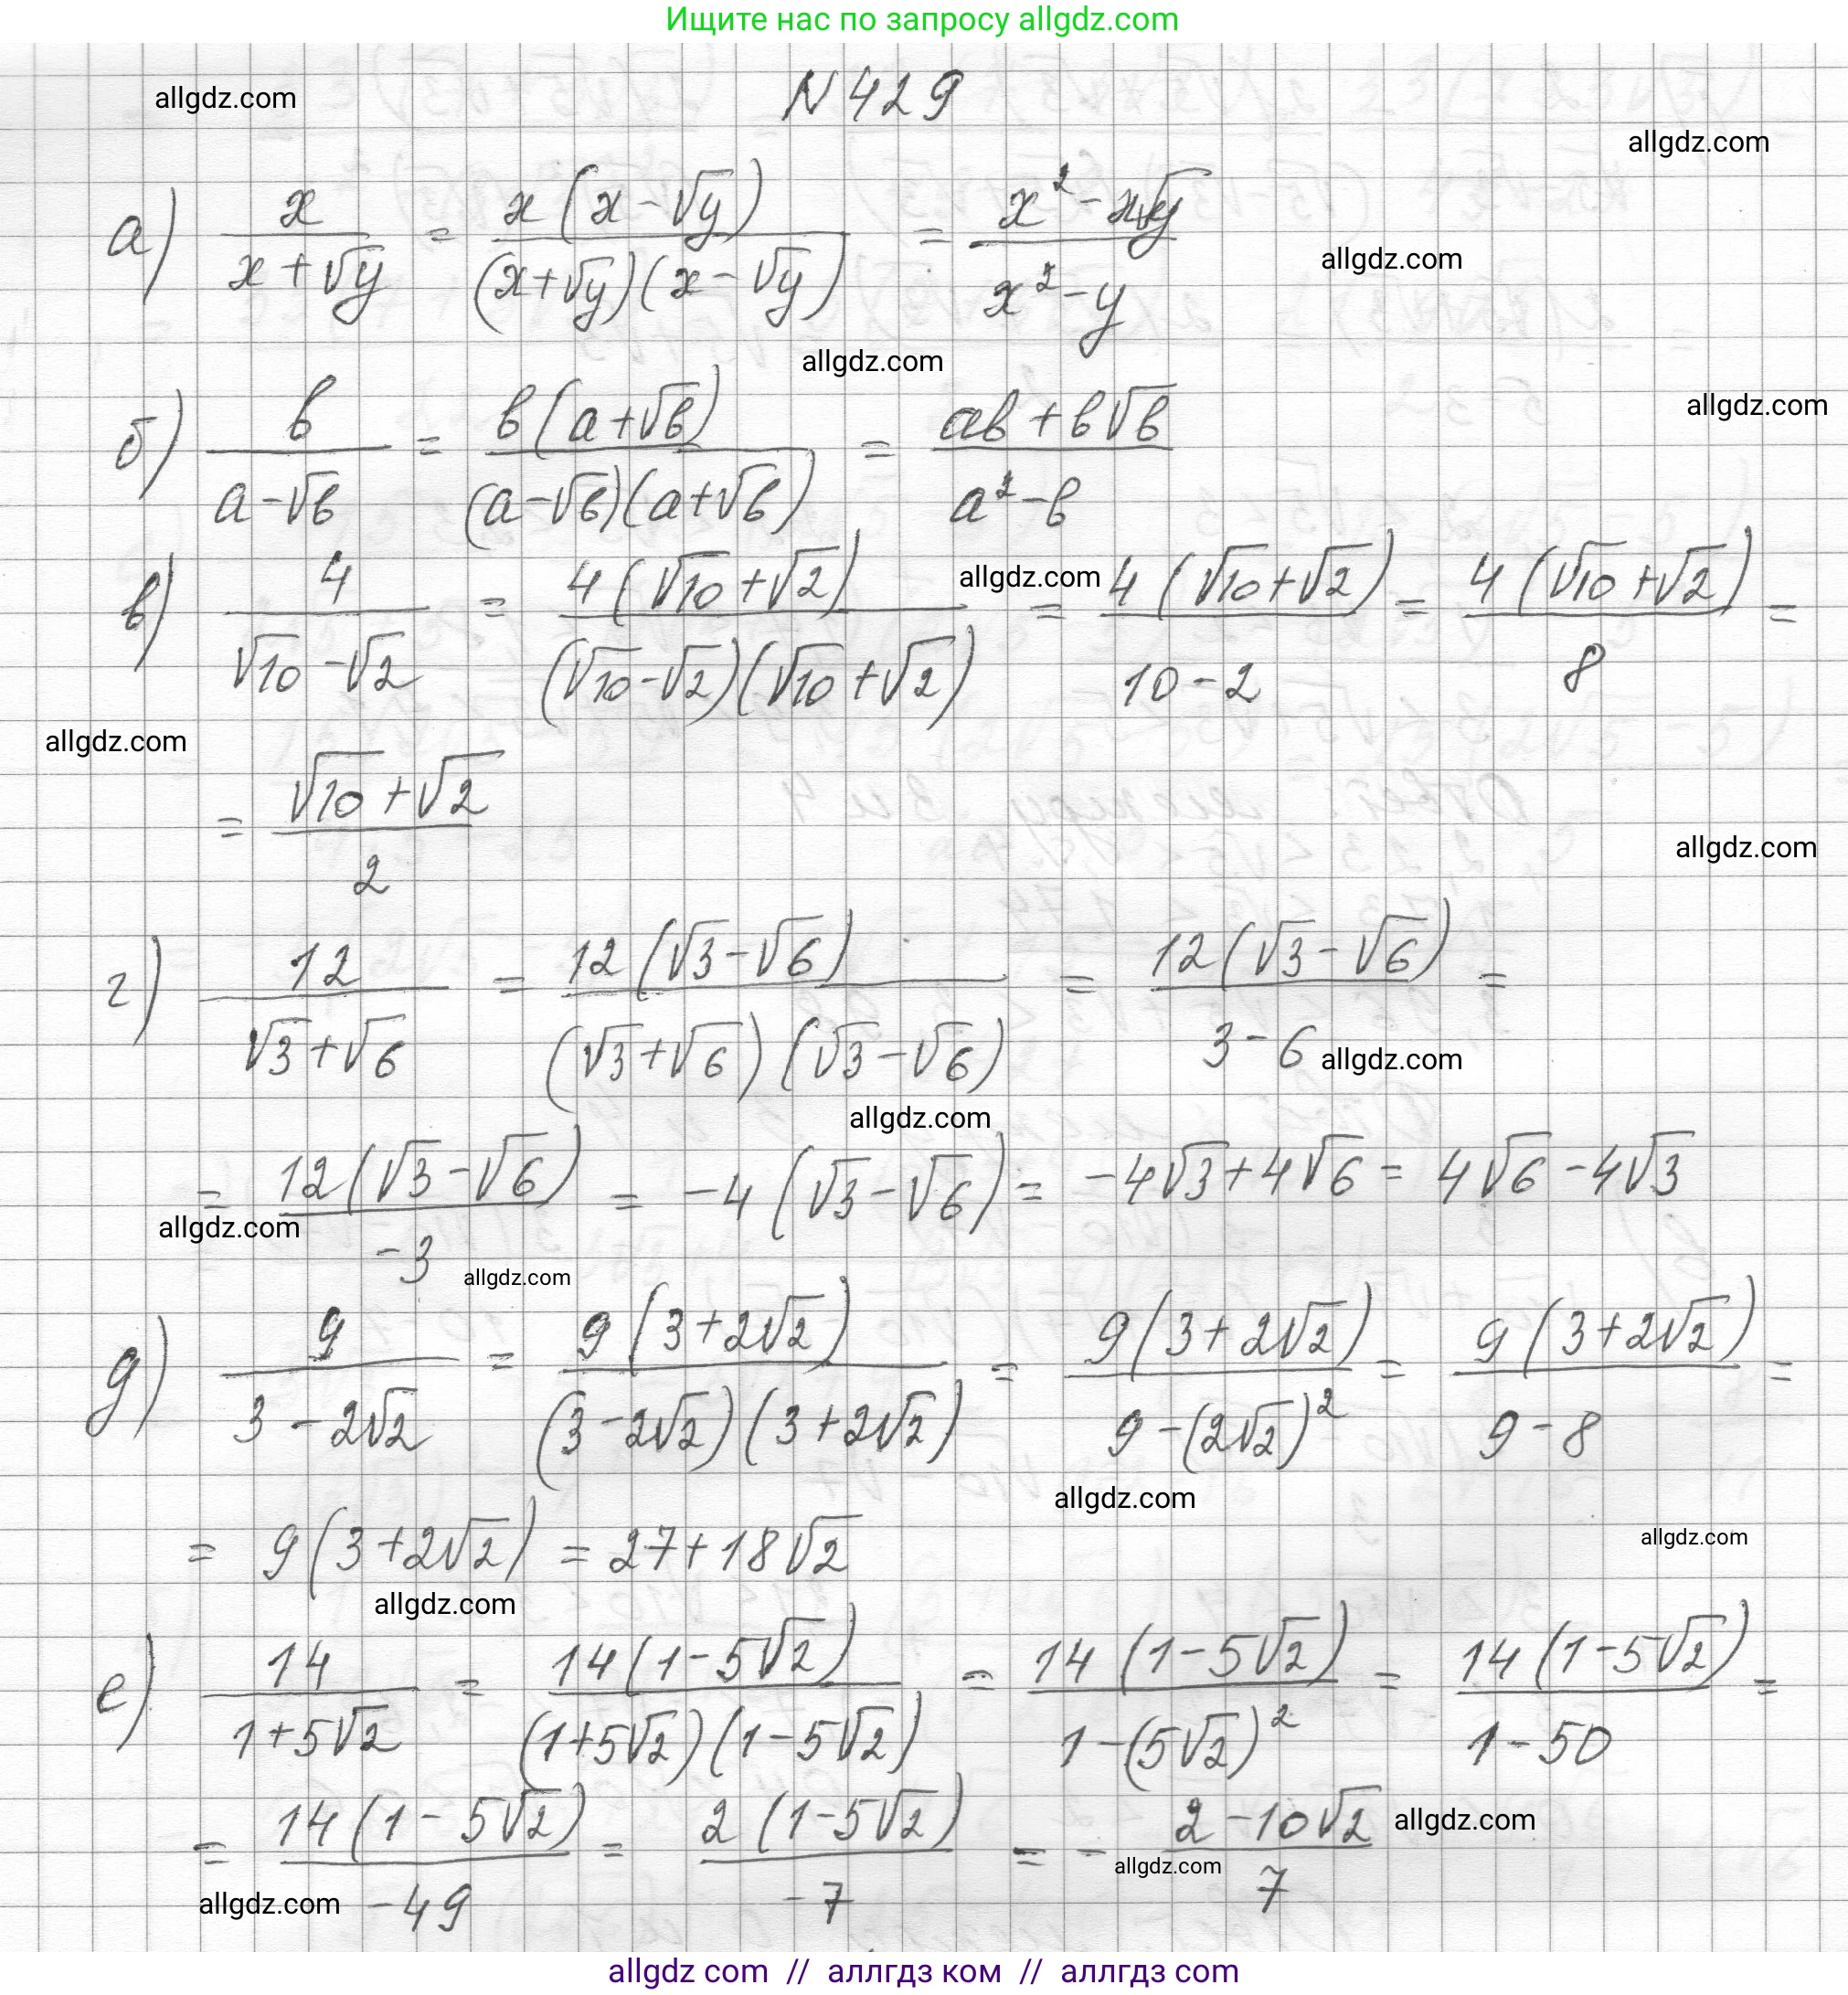 Ищите нас по запросу allgdz.com
allgdz.com
N 429
allgdz.com
а) x/(x+√y) = x(x-√y)/((x+√y)(x-√y)) = (x²-x√y)/(x²-y)
allgdz.com
allgdz.com
allgdz.com
б) b/(a-√b) = b(a+√b)/((a-√b)(a+√b)) = (ab+b√b)/(a²-b)
allgdz.com
в) 4/(√10-√2) = 4(√10+√2)/((√10-√2)(√10+√2)) = 4(√10+√2)/(10-2) = 4(√10+√2)/8 =
allgdz.com
= (√10+√2)/2
allgdz.com
г) 12/(√3+√6) = 12(√3-√6)/((√3+√6)(√3-√6)) = 12(√3-√6)/(3-6) =
allgdz.com
allgdz.com
= 12(√3-√6)/(-3) = -4(√3-√6) = -4√3+4√6 = 4√6-4√3
allgdz.com
allgdz.com
д) 9/(3-2√2) = 9(3+2√2)/((3-2√2)(3+2√2)) = 9(3+2√2)/(9-(2√2)²) = 9(3+2√2)/(9-8) =
allgdz.com
allgdz.com
= 9(3+2√2) = 27+18√2
allgdz.com
е) 14/(1+5√2) = 14(1-5√2)/((1+5√2)(1-5√2)) = 14(1-5√2)/(1-(5√2)²) = 14(1-5√2)/(1-50) =
= 14(1-5√2)/(-49) = 2(1-5√2)/(-7) = -(2-10√2)/7
allgdz.com
allgdz.com
allgdz.com
allgdz com // аллгдз ком // аллгдз com